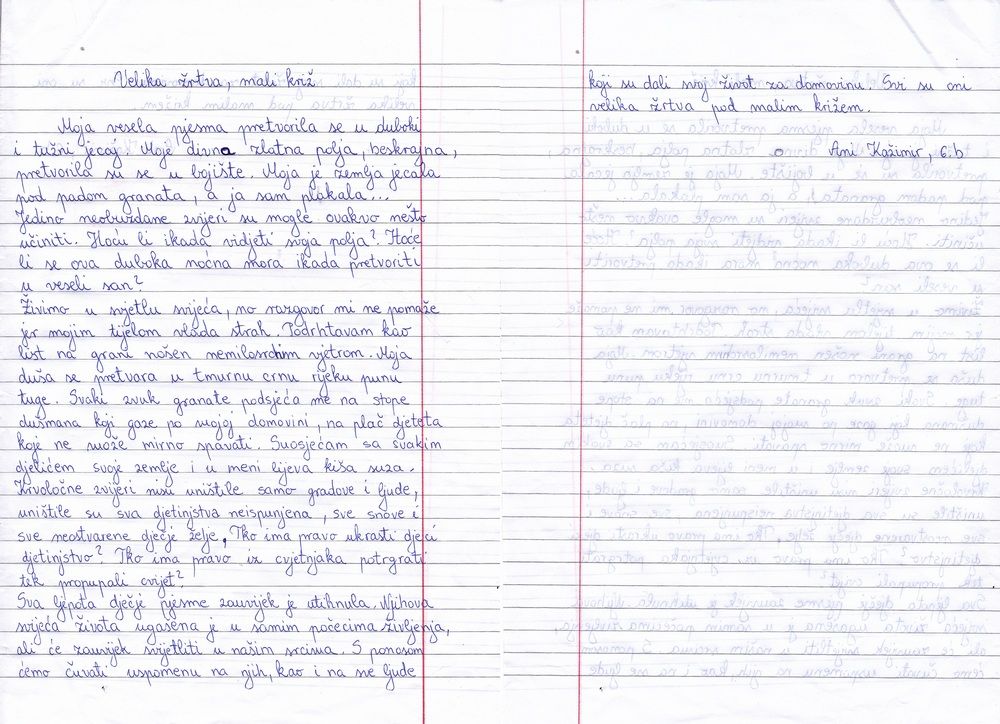 Velika žrtva, mali križ
Moja vesela pjesma pretvorila se u duboki
i tužni jecaj. Moje divna zlatna polja, beskrajna,
pretvorila su se u bojište. Moja je zemlja jecala
pod padom granata, a ja sam plakala...
Jedino neobuzdane zvijeri su mogle ovakvo nešto
učiniti. Hoću li ikada vidjeti svoja polja? Hoće
li se ova duboka noćna mora ikada pretvoriti
u veseli san?
Živimo u svjetlu svijeća, no razgovor mi ne pomaže
jer mojim tijelom vlada strah. Podrhtavam kao
list na grani nošen nemilosrdnim vjetrom. Moja
duša se pretvara u tmurnu crnu rijeku punu
tuge. Svaki zvuk granate podsjeća me na stope
dušmana koji gaze po mojoj domovini, na plač djeteta
koje ne može mirno spavati. Suosjećam sa svakim
djelićem svoje zemlje i u meni lijeva kiša suza.
Krvoločne zvijeri nisu uništile samo gradove i ljude,
uništile su sva djetinjstva neispunjena, sve snove i
sve neostvarene dječje želje. Tko ima pravo ukrasti djeci
djetinjstvo? Tko ima pravo iz cvjetnjaka potrgrati
tek propupali cvijet?
Sva ljepota dječje pjesme zauvijek je utihnula. Njihova
svijeća života ugašena je u samim počecima življenja,
ali će zauvijek svijetliti u našim srcima. S ponosom
ćemo čuvati uspomenu na njih, kao i na sve ljude
koji su dali svoj život za domovinu. Svi su oni
velika žrtva pod malim križem.
Ani Kažimir, 6.b